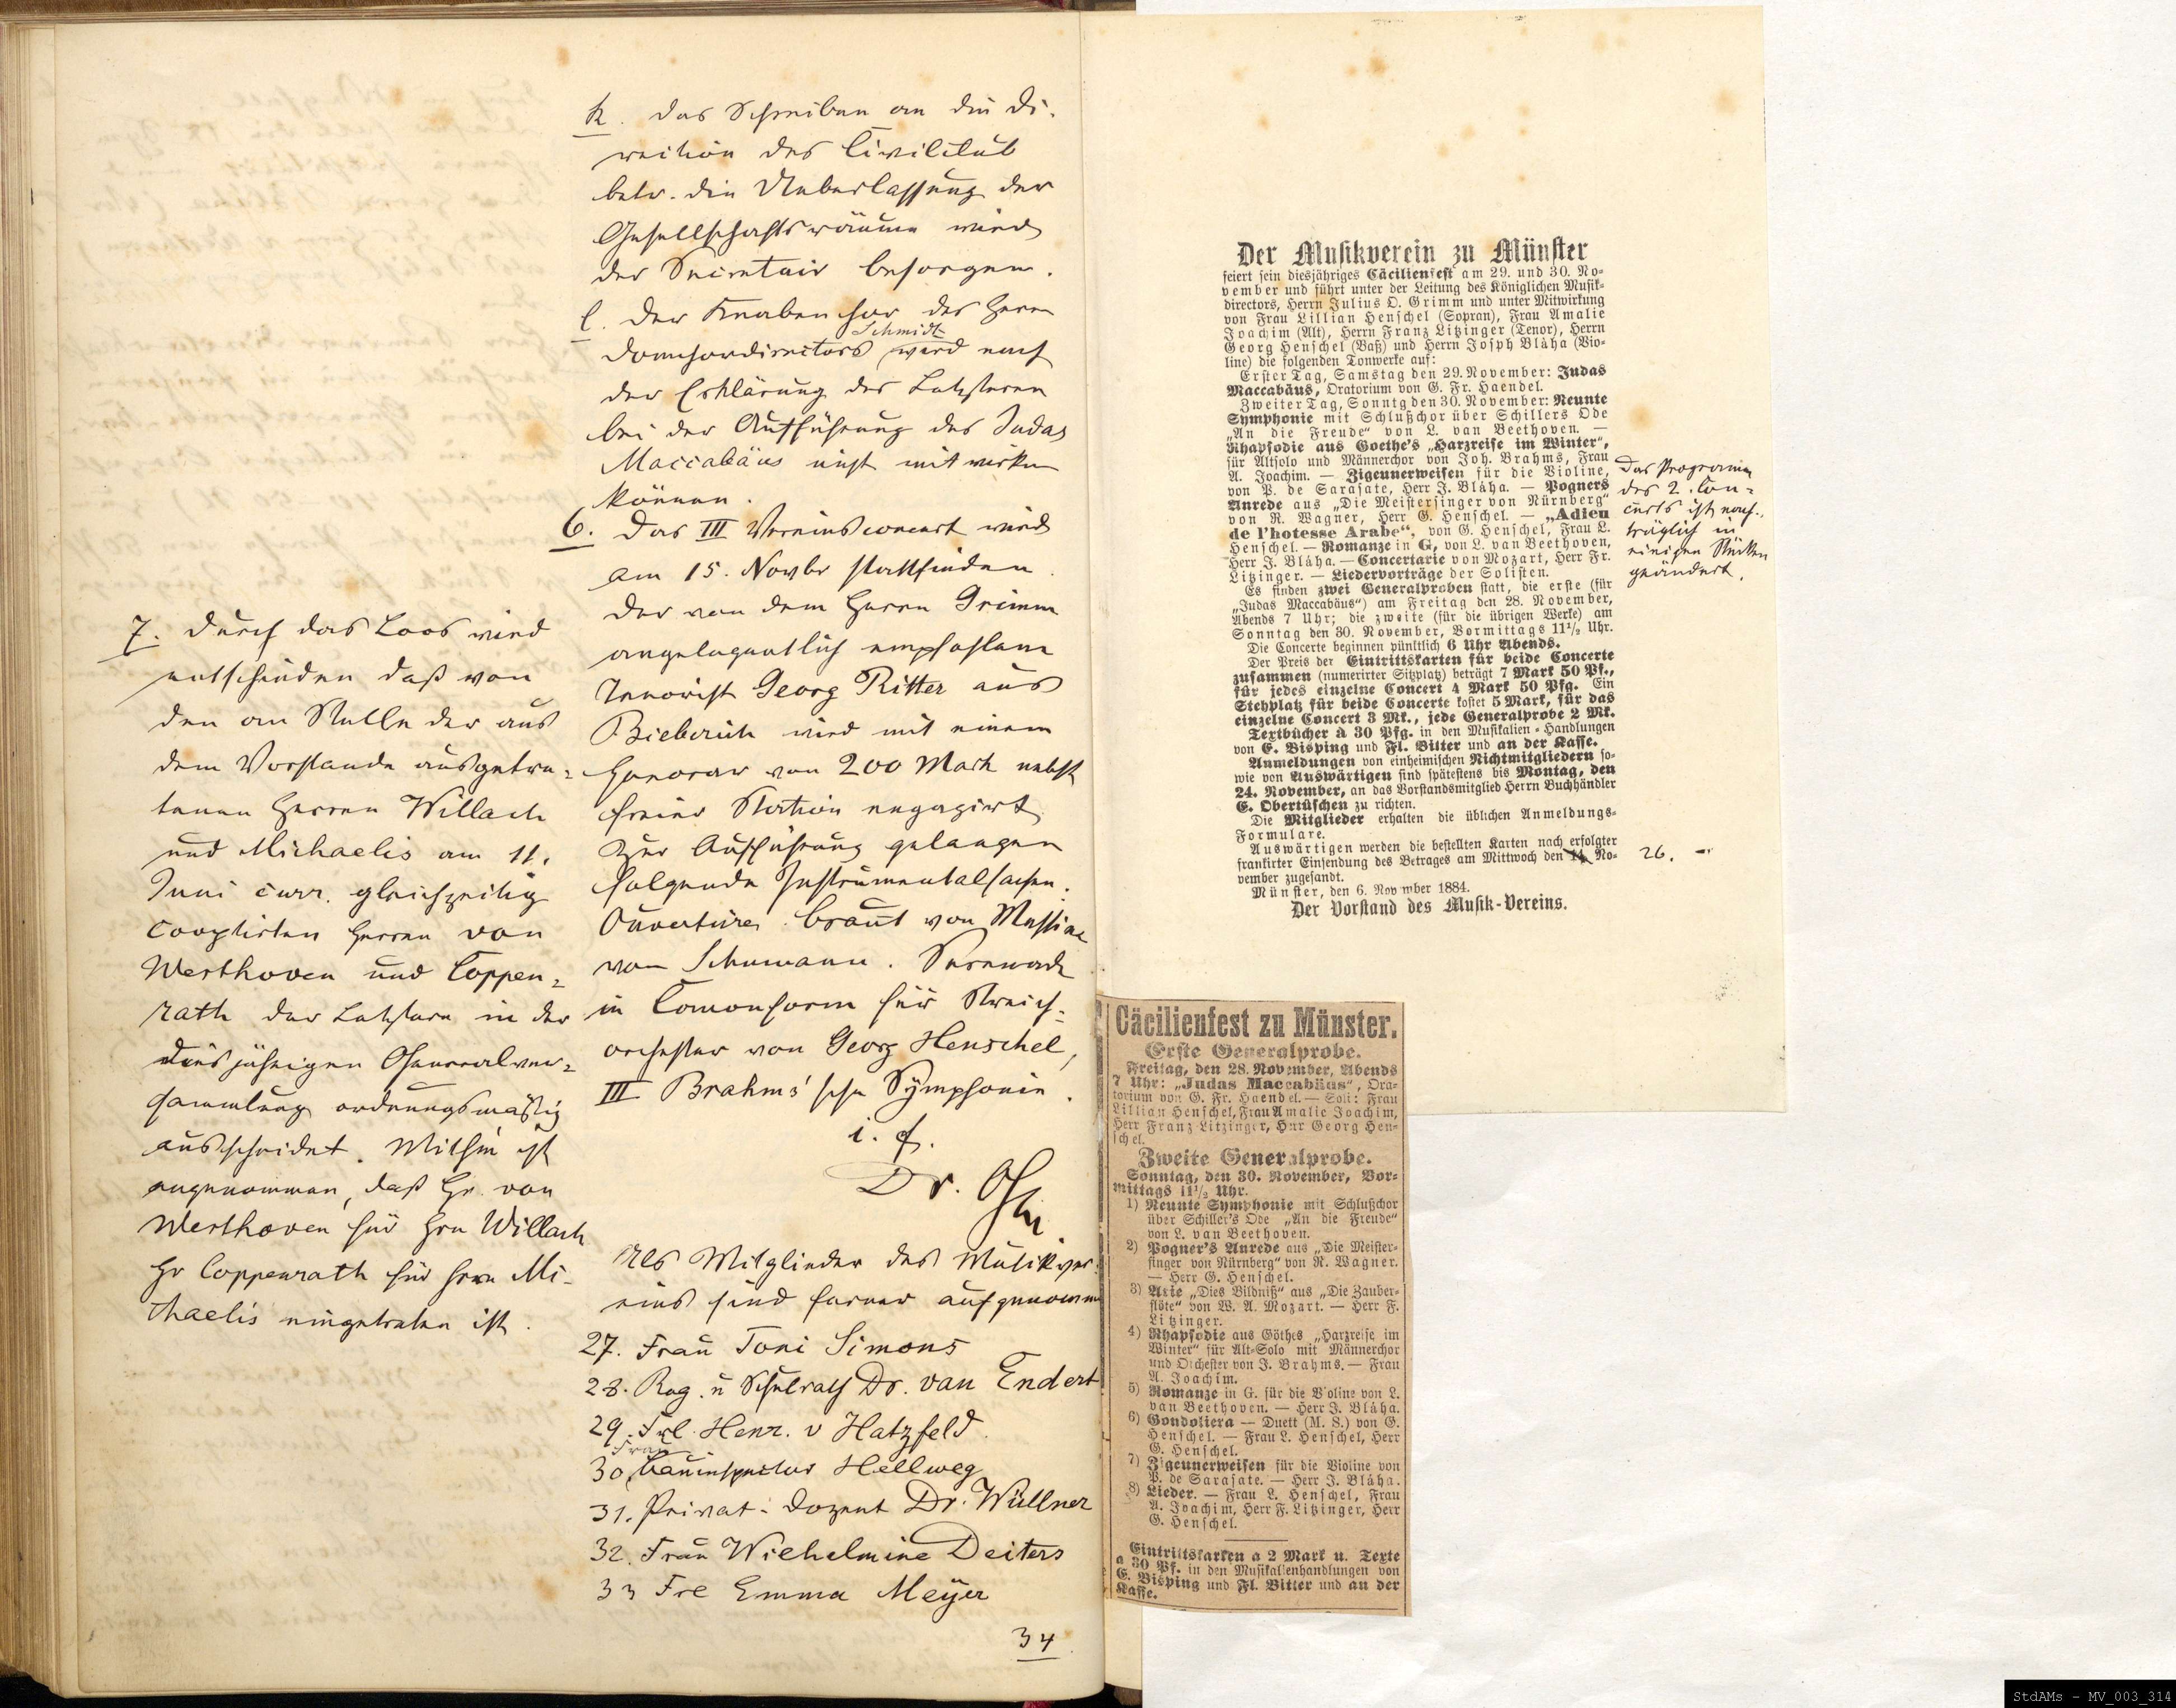 k. das Schreiben an die Di-
rection des Civilclub
betr. die Ueberlassung der
Gesellschaftsräume wird
der Secretair besorgen.
l. Der Knabenchor des Herrn
Schmidt
Domchordirectors wird nach
der Erklärung des Letzteren
bei der Aufführung des Judas
Maccabäus nicht mitwirken
können.
6. Das III Vereinsconcert wird
am 15. Novbr stattfinden.
Der von dem Herrn Grimm
angelegentlich empfohlene
Tenorist Georg Ritter aus
Bieberich wird mit einem
Honorar von 200 Mark nebst
freier Station engagirt
Zur Aufführung gelangen
folgende Instrumentalsachen.
Ouverture Braut von Messina
von Schumann. Serenade
in Canonform für Streich-
orchester von Georg Henschel,
III Brahms'sche Symphonie.
Dr.
Als Mitglieder des Musikver-
eins sind ferner aufgenommen
27. Frau Toni Simons
28. Reg. u Schulrath Dr. van Endert
29. Frl. Henr. v Hatzfeld.
Frau
30, Bauinspector Hellweg
31. Privat-Dozent Dr. Wüllner
32. Frau Wilhelmine Deiters
33 Frl Emma Meyer
34
7. Durch das Loos wird
entschieden daß von
den an Stelle der aus
dem Vorstande ausgetre-
tenen Herren Willach
und Michaelis am 11.
Juni curr. gleichzeitig
cooptirten Herren von
Westhoven und Coppen-
rath der Letztere in der
diesjährigen Generalver-
sammlung ordnungsmäßig
ausscheidet. Mithin ist
angenommen, daß Hr. von
Westhoven für Hrn Willach
Hr Coppenrath für Herrn Mi-
chaelis eingetreten ist.
Der Musikverein zu Münster
feiert sein diesjähriges Cäcilienfest am 29. und 30. No-
vember und führt unter der Leitung des Königlichen Musik-
directors, Herrn Julius O. Grimm und unter Mitwirkung
von Frau Lillian Henschel (Sopran), Frau Amalie
Joachim (Alt), Herrn Franz Litzinger (Tenor), Herrn
Georg Henschel (Baß) und Herrn Josph Bláha (Vio-
line) die folgenden Tonwerke auf:
Erster Tag, Samstag den 29. November: Judas
Maccabäus, Oratorium von G. Fr. Haendel.
Zweiter Tag, Sonntg den 30. November: Neunte
Symphonie mit Schlußchor über Schillers Ode
„An die Freude" von L. van Beethoven. —
Rhapsodie aus Goethe's „Harzreise im Winter",
für Altsolo und Männerchor von Joh. Brahms, Frau
A. Joachim. — Zigeunerweisen für die Violine,
von P. de Sarasate, Herr J. Bláha. — Pogners
Anrede aus „Die Meistersinger von Nürnberg"
von R. Wagner, Herr G. Henschel. — „Adieu
de l'hotesse Arabe", von G. Henschel, Frau L.
Henschel. — Romanze in G, von L. van Beethoven,
Herr J. Bláha. — Concertarie von Mozart, Herr Fr.
Litzinger. — Liedervorträge der Solisten.
Es finden zwei Generalproben statt, die erste (für
„Judas Maccabäus") am Freitag den 28. November,
Abends 7 Uhr; die zweite (für die übrigen Werke) am
Sonntag den 30. November, Vormittags 11½ Uhr.
Die Concerte beginnen pünktlich 6 Uhr Abends.
Der Preis der Eintrittskarten für beide Concerte
zusammen (numerirter Sitzplatz) beträgt 7 Mark 50 Pf.,
für jedes einzelne Concert 4 Mark 50 Pfg. Ein
Stehplatz für beide Concerte kostet 5 Mark, für das
einzelne Concert 3 Mk., jede Generalprobe 2 Mk.
Textbücher à 30 Pfg. in den Musikalien-Handlungen
von E. Bisping und Fl. Bitter und an der Kasse.
Anmeldungen von einheimischen Nichtmitgliedern so-
wie von Auswärtigen sind spätestens bis Montag, den
24. November, an das Vorstandsmitglied Herrn Buchhändler
E. Obertüschen zu richten.
Die Mitglieder erhalten die üblichen Anmeldungs-
Formulare.
Auswärtigen werden die bestellten Karten nach erfolgter
frankirter Einsendung des Betrages am Mittwoch den 14. No-
vember zugesandt.
Münster, den 6. Nov mber 1884.
Der Vorstand des Musik-Vereins.
Das Programm
des 2. Con-
certs ist nach-
träglich in
einigen Stücken
geändert.
26. —
Cäcilienfest zu Münster.
Erste Generalprobe.
Freitag, den 28. November, Abends
7 Uhr: „Judas Maccabäus", Ora-
torium von G. Fr. Haendel. — Soli: Frau
Lillian Henschel, Frau Amalie Joachim,
Herr Franz Litzinger, Herr Georg Hen-
schel.
Zweite Generalprobe.
Sonntag, den 30. November, Vor-
mittags 11½ Uhr.
1) Neunte Symphonie mit Schlußchor
über Schiller's Ode „An die Freude"
von L. van Beethoven.
2) Pogner's Anrede aus „Die Meister-
singer von Nürnberg" von R. Wagner.
— Herr G. Henschel.
3) Arie „Dies Bildniß" aus „Die Zauber-
flöte" von W. A. Mozart. — Herr F.
Litzinger.
4) Rhapsodie aus Göthes „Harzreise im
Winter" für Alt-Solo mit Männerchor
und Orchester von J. Brahms. — Frau
A. Joachim.
5) Romanze in G. für die Violine von L.
van Beethoven. — Herr J. Bláha.
6) Gondoliera — Duett (M. S.) von G.
Henschel. — Frau L. Henschel, Herr
G. Henschel.
7) Zigeunerweisen für die Violine von
P. de Sarasate. — Herr J. Bláha.
8) Lieder. — Frau L. Henschel, Frau
A. Joachim, Herr F. Litzinger, Herr
G. Henschel.
Eintrittskarten a 2 Mark u. Texte
a 30 Pf. in den Musikalienhandlungen von
E. Bisping und Fl. Bitter und an der
Kasse.
StdAMs - MV_003_314